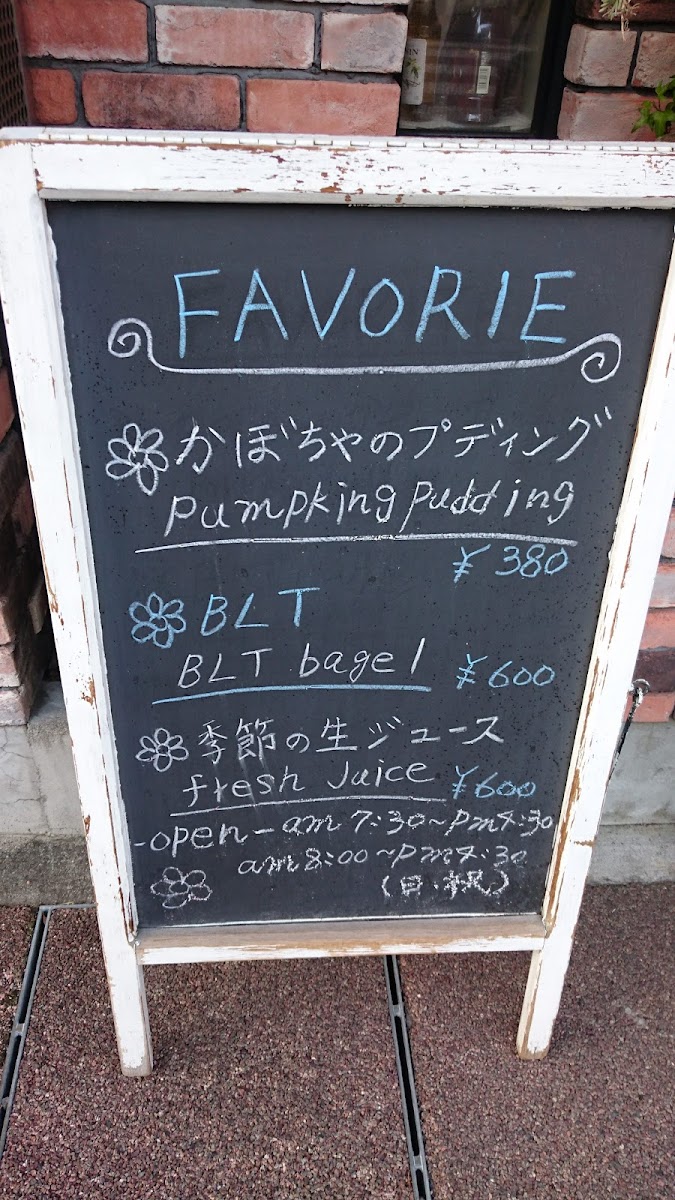 FAVORIE
かぼちゃのプディング
Pumpking pudding
¥380
BLT
BLT bagel ¥600
季節の生ジュース
fresh Juice ¥600
-open- am 7:30~pm4:30
am 8:00~pm4:30
(日・祝)